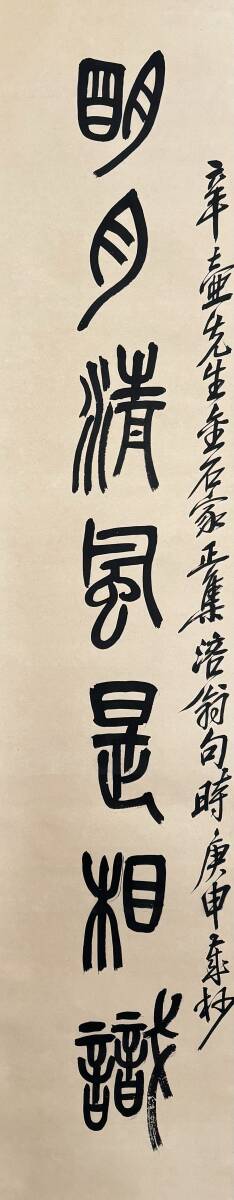 辛壺先生金石家正集涪翁句時庚申歲杪
明月清風是相識